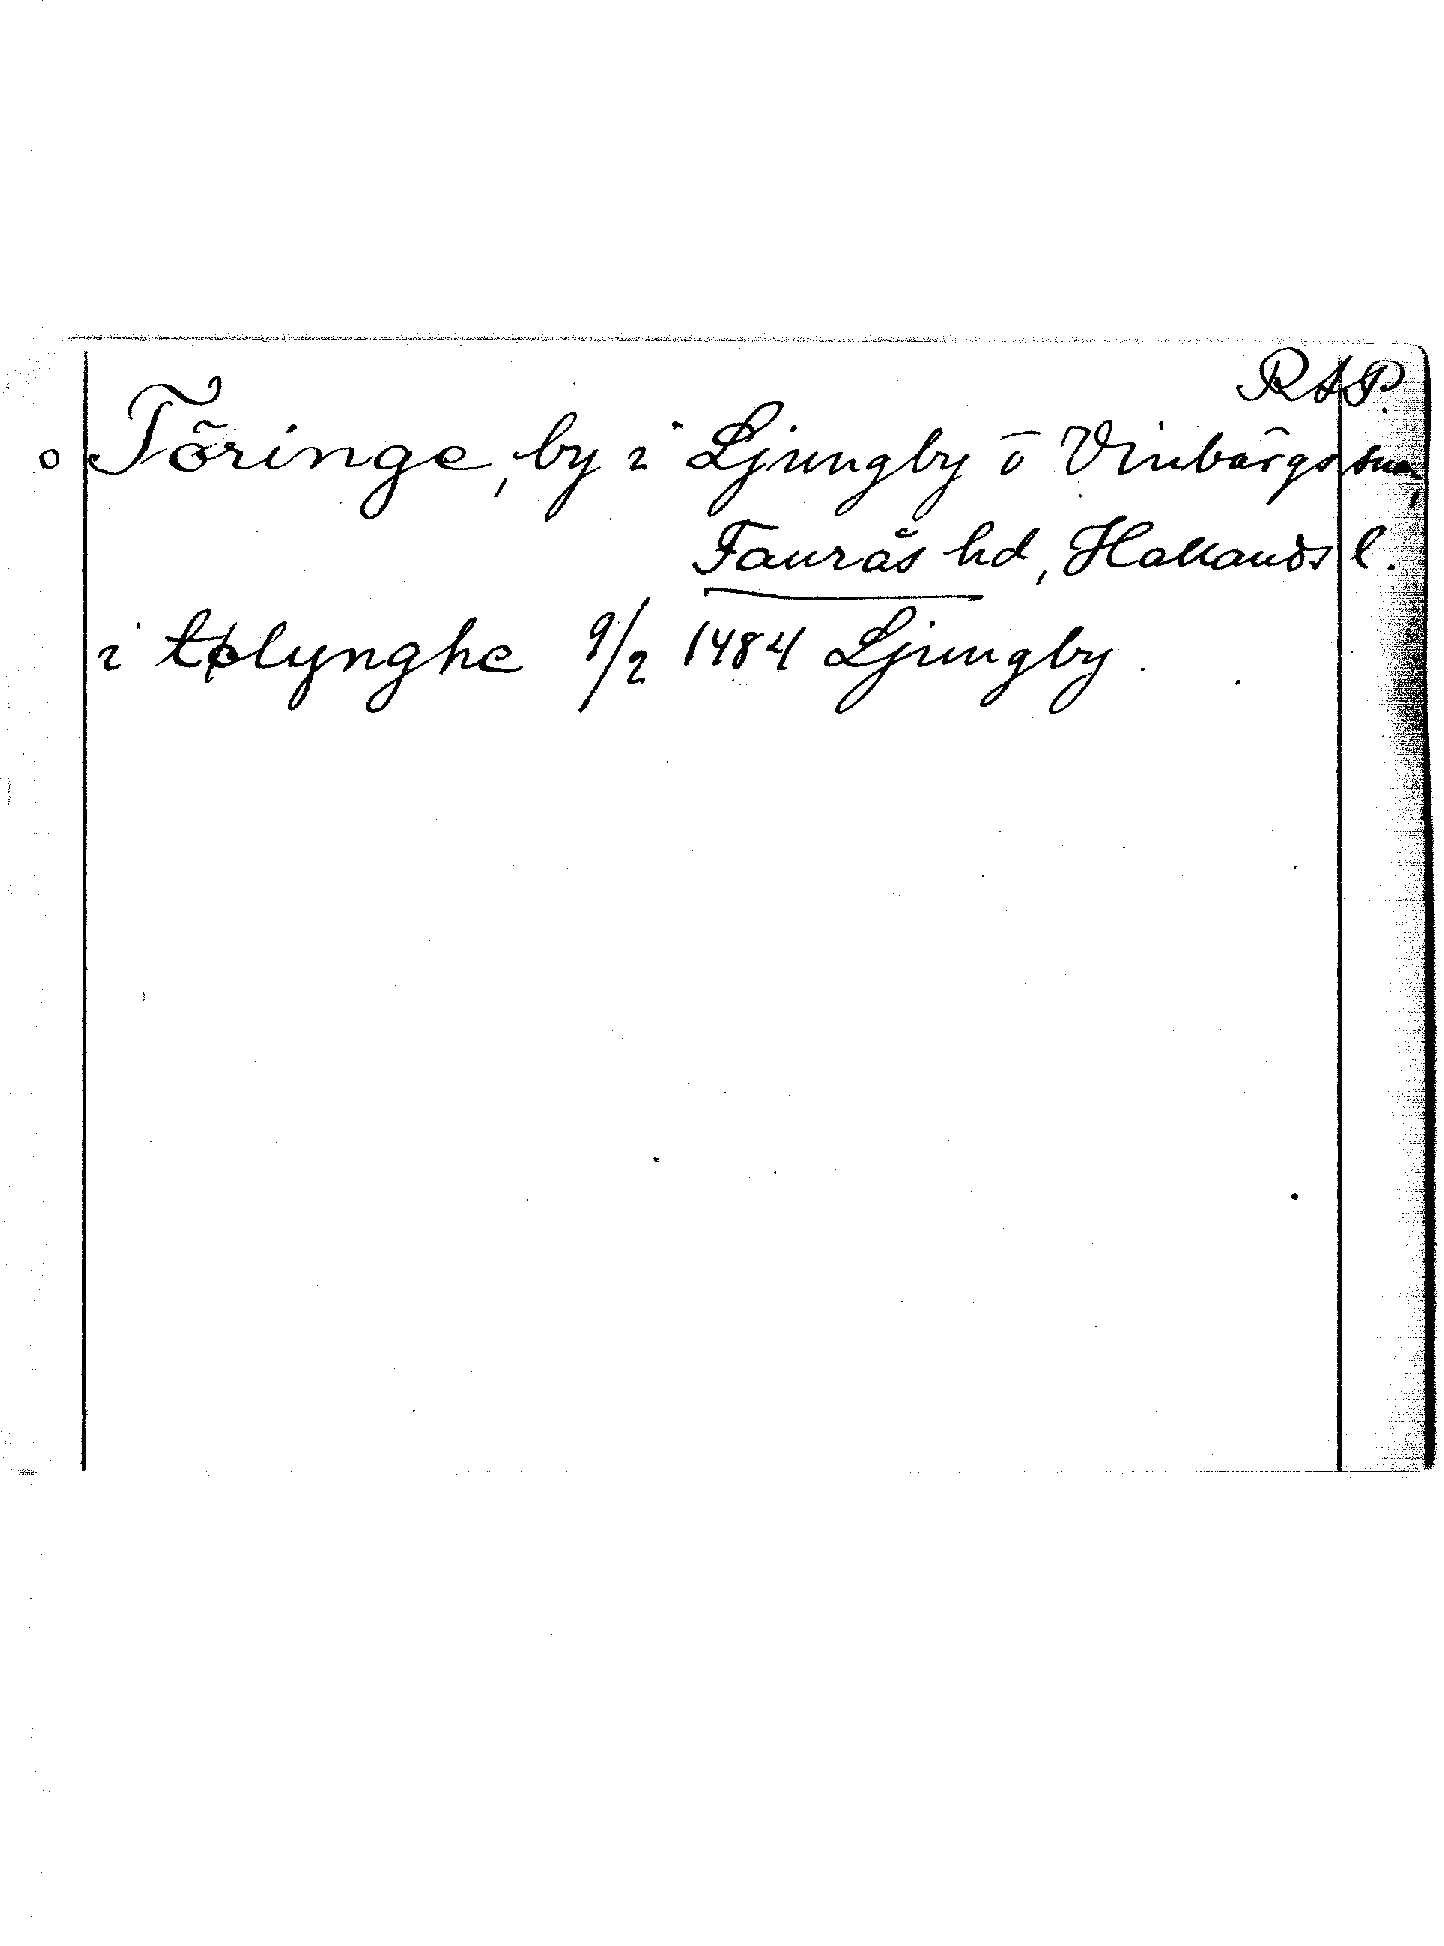 RAP.
o Töringe, by i Ljungby o Vinbärgs snr,
Faurås hd, Hallands l.
i tølynghe 9/2 1484 Ljungby